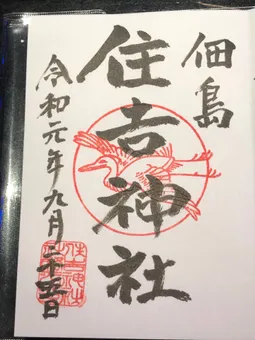 佃島
住吉神社
令和元年九月二十五日
住吉神社